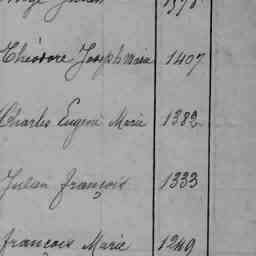 Théodore Joseph Marie 1407
Charles Eugène Marie 1382
Julien François 1333
François Marie 1249